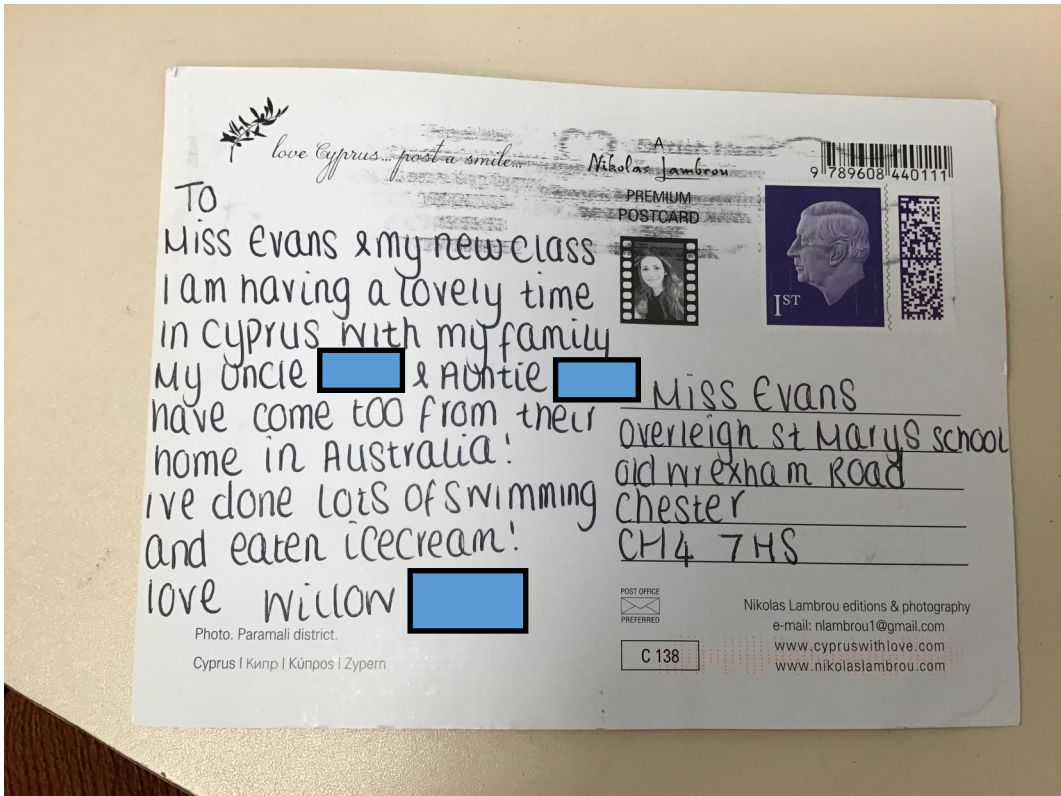 love Cyprus... post a smile...
A
Nikolas Lambrou
PREMIUM
POSTCARD
9 789608 440111
1ST
TO
Miss Evans & my new class
I am having a lovely time
in Cyprus with my family
My Uncle & Auntie
have come too from their
home in Australia!
ive done lots of swimming
and eaten icecream!
love Willow
Miss Evans
Overleigh St Marys school
old Wrexham Road
Chester
CH4 7HS
Photo. Paramali district.
Cyprus | Кипр | Κύπρος | Zypern
POST OFFICE
PREFERRED
C 138
Nikolas Lambrou editions & photography
e-mail: nlambrou1@gmail.com
www.cypruswithlove.com
www.nikolaslambrou.com